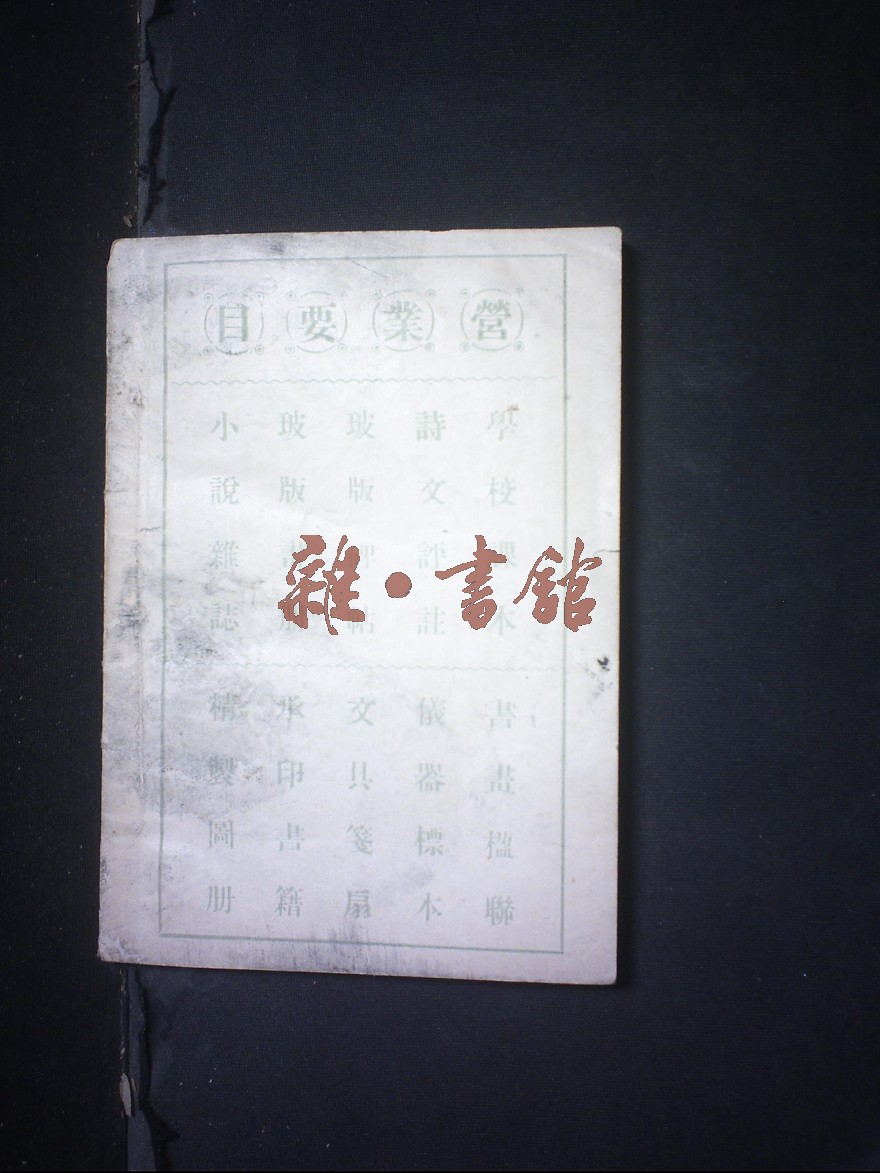 營業要目
學校課本
詩文評註
玻版碑帖
玻版書册
小說雜誌
書畫楹聯
儀器標本
文具箋扇
承印書籍
精製圖册
雜·書館